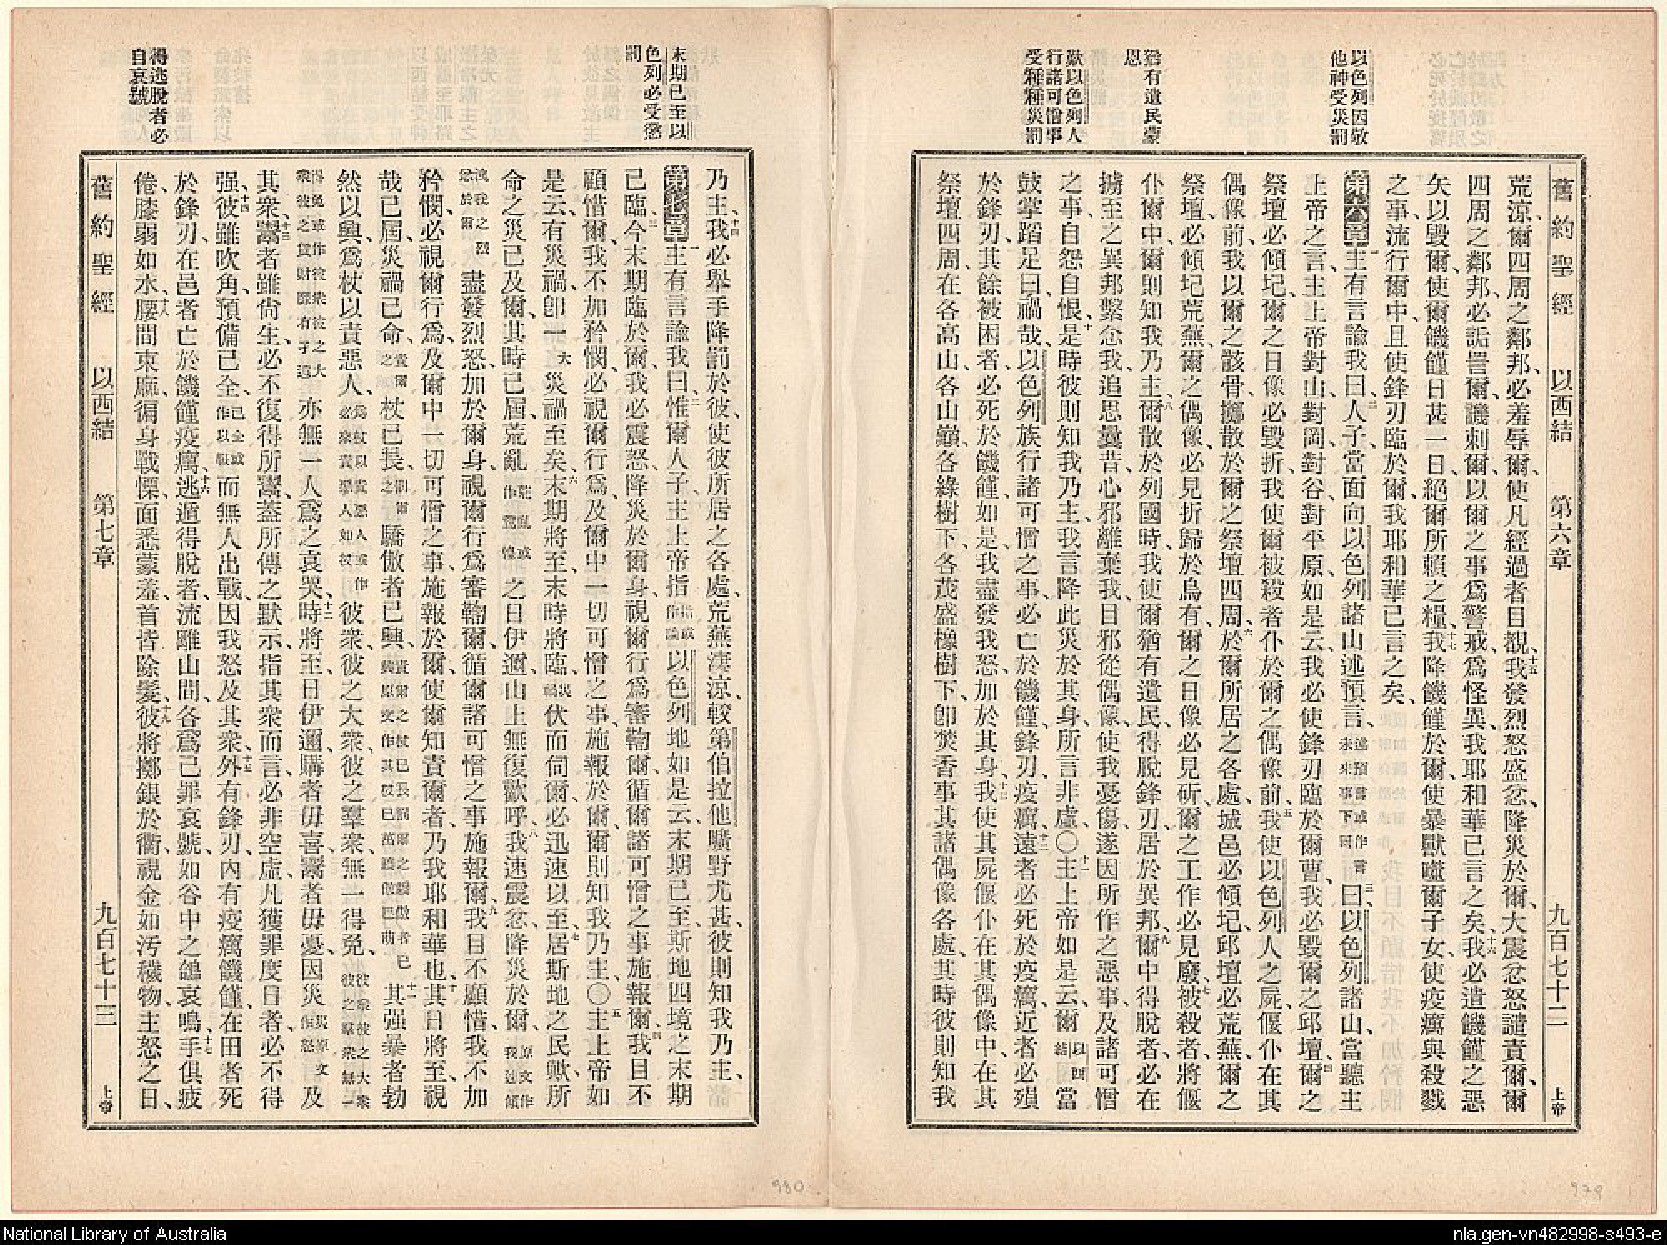 以色列因敬
他神受災罰
尙有遺民蒙
恩
歎以色列人
行諸可憎事
受種種災罰
舊約聖經 以西結 第六章 九百七十二 上帝
荒涼、爾四周之鄰邦、必羞辱爾、使凡經過者目覩、十五我發烈怒盛忿、降災於爾、大震忿怒譴責爾、爾
四周之鄰邦、必詬詈爾、譏刺爾、以爾之事爲警戒、爲怪異、我耶和華已言之矣、十六我必遣饑饉之惡
矢以毀爾、使爾饑饉日甚一日、絕爾所賴之糧、十七我降饑饉於爾、使暴獸噬爾子女、使疫癘與殺戮
之事、流行爾中、且使鋒刃臨於爾、我耶和華已言之矣、
第六章 一主有言諭我曰、二人子當面向以色列諸山述預言、 三曰、以色列諸山、當聽主
上帝之言、主上帝對山、對岡、對谷、對平原、如是云、我必使鋒刃臨於爾曹、我必毀爾之邱壇、四爾之
祭壇必傾圮、爾之日像必毀折、我使爾被殺者仆於爾之偶像前、五我使以色列人之屍、偃仆在其
偶像前、我以爾之骸骨、擲散於爾之祭壇四周、六於爾所居之各處、城邑必傾圮、邱壇必荒蕪、爾之
祭壇、必傾圮荒蕪、爾之偶像、必見折歸於烏有、爾之日像必見斫、爾之工作必見廢、七被殺者將偃
仆爾中、爾則知我乃主、八爾散於列國時、我使爾猶有遺民、得脫鋒刃、居於異邦、九爾中得脫者、必在
擄至之異邦繫念我、追思曩昔心邪離棄我、目邪從偶像、使我憂傷、遂因所作之惡事、及諸可憎
之事、自怨自恨、十是時彼則知我乃主、我言降此災於其身、所言非虛、○十一主上帝如是云、爾以西結當
鼓掌蹈足曰、禍哉、以色列族行諸可憎之事、必亡於饑饉、鋒刃、疫癘、十二遠者必死於疫癘、近者必殞
於鋒刃、其餘被困者必死於饑饉、如是、我盡發我怒、加於其身、十三我使其屍偃仆在其偶像中、在其
祭壇四周、在各高山、各山巔、各綠樹下、各茂盛橡樹下、卽焚香事其諸偶像各處、其時彼則知我
末期已至以
色列必受懲
罰
得逃脫者必
自哀號
乃主、十四我必舉手降罰於彼、使彼所居之各處、荒蕪淒涼、較第伯拉他曠野尤甚、彼則知我乃主、
第七章 一主有言諭我曰、二惟爾人子、主上帝指 以色列地如是云、末期已至、斯地四境之末期
已臨、三今末期臨於爾、我必震怒、降災於爾身、視爾行爲審鞫爾、循爾諸可憎之事施報爾、四我目不
顧惜爾、我不加矜憫、必視爾行爲、及爾中一切可憎之事、施報於爾、爾則知我乃主、○五主上帝如
是云、有災禍、卽一大災禍至矣、六末期將至、末時將臨、 伏而伺爾、必迅速以至、七居斯地之民歟、所
命之災已及爾、其時已屆、荒亂 之日伊邇、山上無復歡呼、八我速震忿、降災於爾、
盡發烈怒、加於爾身、視爾行爲審鞫爾、循爾諸可憎之事施報爾、九我目不顧惜、我不加
矜憫、必視爾行爲、及爾中一切可憎之事、施報於爾、使爾知責爾者乃我耶和華也、十其日將至、視
哉已屆、災禍已命、 杖已長、 驕傲者已興、 十一其强暴者勃
然以興、爲杖以責惡人、 彼衆、彼之大衆、彼之羣衆、無一得免、
亦無一人爲之哀哭、十二時將至、日伊邇、購者毋喜、鬻者毋憂、因災 及
其衆、十三鬻者雖尙生、必不復得所鬻、蓋所傳之默示、指其衆而言、必非空虛、凡獲罪度日者、必不得
强、十四彼雖吹角、預備已全、 而無人出戰、因我怒及其衆、十五外有鋒刃、內有疫癘饑饉、在田者死
於鋒刃、在邑者亡於饑饉疫癘、十六逃遁得脫者、流離山間、各爲己罪哀號、如谷中之鴿哀鳴、十七手俱疲
倦、膝弱如水、十八腰間束麻、徧身戰慄、面悉蒙羞、首皆除髮、十九彼將擲銀於衢、視金如污穢物、主怒之日、
舊約聖經 以西結 第七章 九百七十三 上帝
930
929
National Library of Australia
nla.gen-vn482998-s493-e